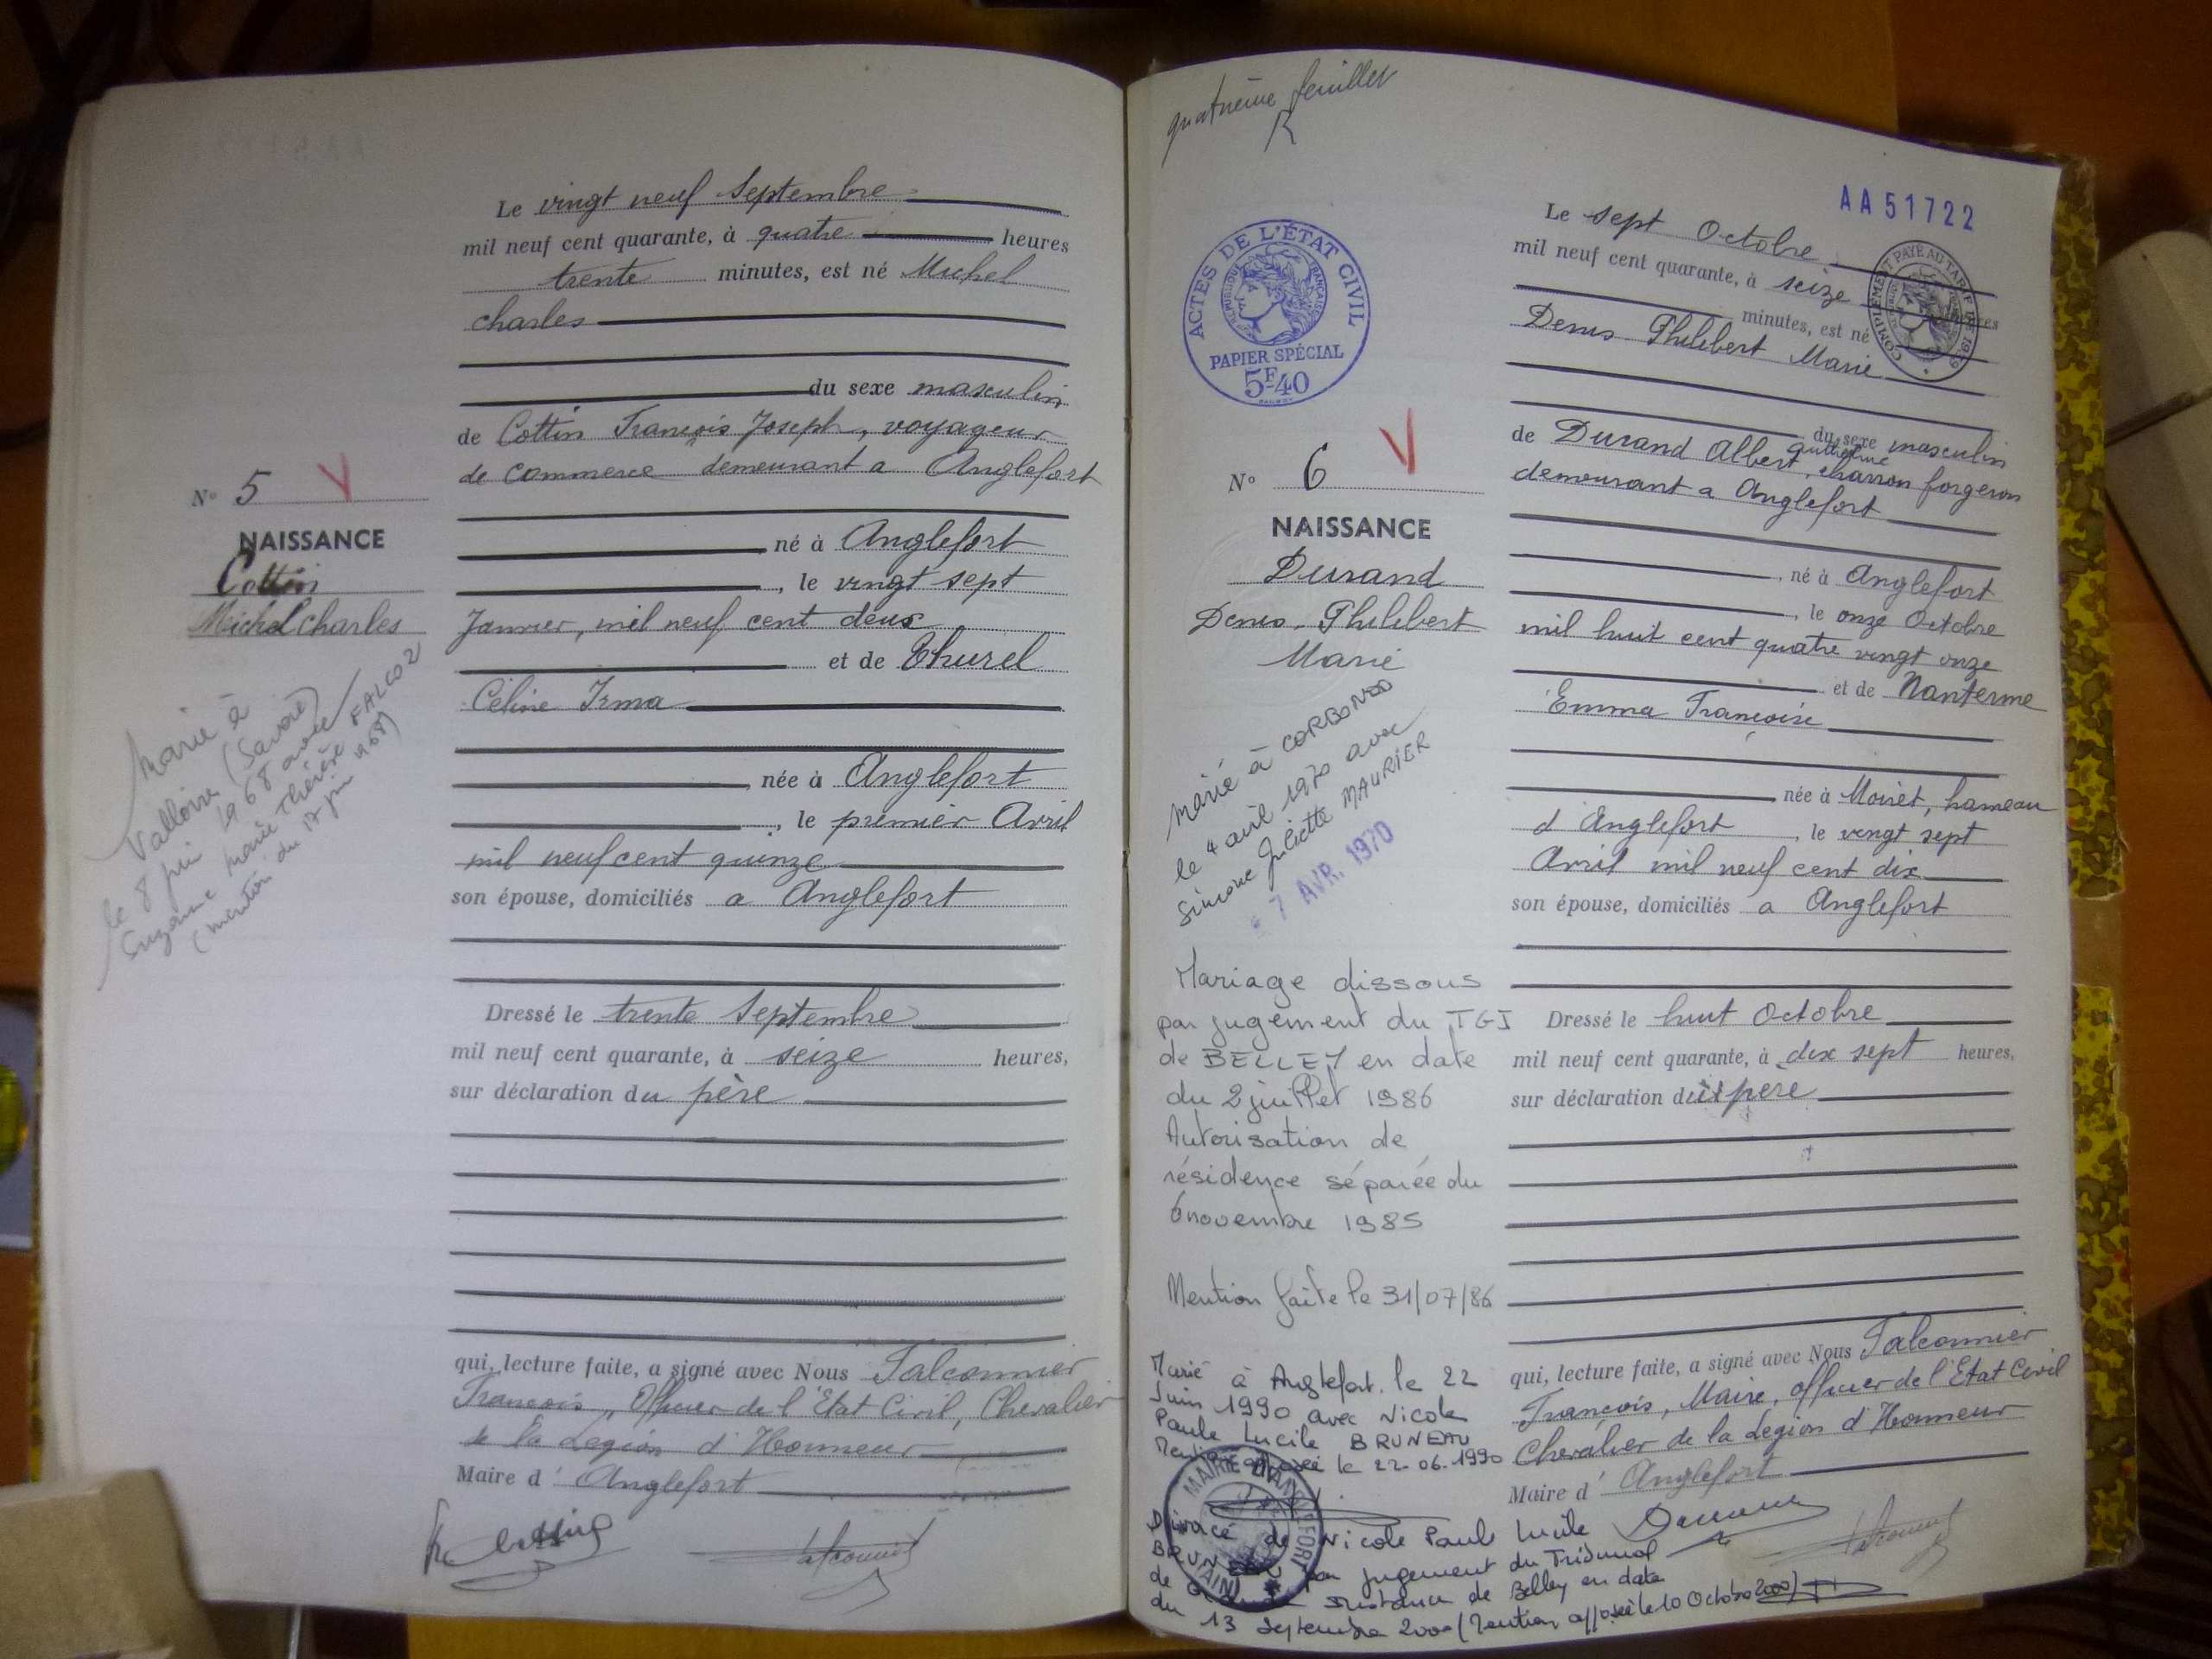 Le vingt neuf Septembre
mil neuf cent quarante, à quatre heures
trente minutes, est né Michel
charles
du sexe masculin
de Cottin François Joseph, voyageur
de commerce demeurant a Anglefort
né à Anglefort
, le vingt sept
Janvier, mil neuf cent deux
et de Thurel
Céline Irma
née à Anglefort
, le premier Avril
mil neuf cent quinze
son épouse, domiciliés a Anglefort
Dressé le trente Septembre
mil neuf cent quarante, à seize heures,
sur déclaration du père
qui, lecture faite, a signé avec Nous Falconnier
François, Officier de l'Etat Civil, Chevalier
de la Légion d'Honneur
Maire d' Anglefort
N° 5 V
NAISSANCE
Cottin
Michel charles
Marié à
Valloire (Savoie)
le 8 juin 1968 avec
Suzanne Marie Thérèse FALCOZ
(mention du 17 juin 1968)
quatrième feuillet
AA51722
ACTES DE L'ÉTAT CIVIL
RÉPUBLIQUE FRANÇAISE
PAPIER SPÉCIAL
5F40
COMPLEMENT PAYÉ AU TARIF DE 1939
Le sept Octobre
mil neuf cent quarante, à seize heures
minutes, est né
Denis Philibert Marie
du sexe masculin
de Durand Albert Guthelme, charron forgeron
demeurant a Anglefort
né à Anglefort
, le onze Octobre
mil huit cent quatre vingt onze
et de Nanterme
Emma Françoise
née à Moiret, hameau
d'Anglefort, le vingt sept
Avril mil neuf cent dix
son épouse, domiciliés a Anglefort
Dressé le huit Octobre
mil neuf cent quarante, à dix sept heures,
sur déclaration du père
qui, lecture faite, a signé avec Nous Falconnier
François, Maire, Officier de l'Etat Civil
Chevalier de la Légion d'Honneur
Maire d' Anglefort
N° 6 V
NAISSANCE
Durand
Denis. Philibert
Marie
Marié à CORBONOD
le 4 avril 1970 avec
Simone Juliette MAURIER
7 AVR. 1970
Mariage dissous
par jugement du TGI
de BELLEY en date
du 2 juillet 1986
Autorisation de
résidence séparée du
6 novembre 1985
Mention faite le 31/07/86
Marié à Anglefort. le 22
Juin 1990 avec Nicole
Paule Lucile BRUNEAU
Mention apposée le 22-06.1990
MAIRIE D'ANGLEFORT
(AIN)
Divorcé de Nicole Paule Lucile
BRUNEAU par jugement du Tribunal
de Grande Instance de Belley en date
du 13 Septembre 2000 (Mention apposée le 10 Octobre 2000)